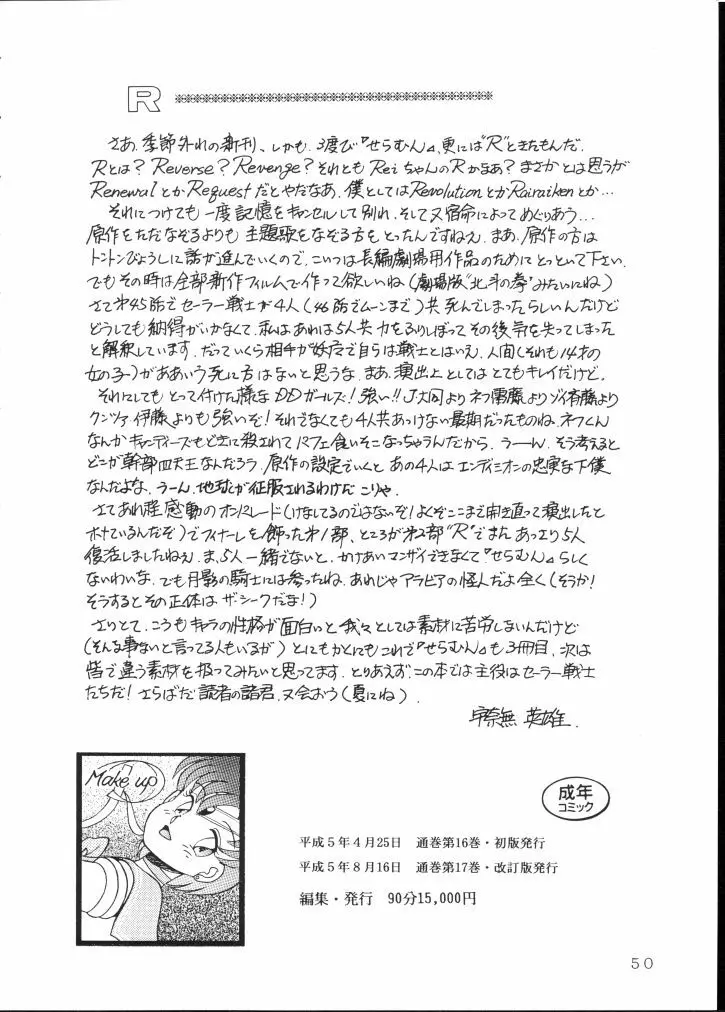 R
さあ、季節外れの新刊、しかも、3度び『せらむん』、更には"R"ときたもんだ。
Rとは？Reverse？Revenge？それともReiちゃんのRかなあ？まさかとは思うが
RenewalとかRequestだとやだなあ。僕としてはRevolutionとかRairaikenとか…
それにつけても一度記憶をキャンセルして別れ、そして又宿命によってめぐりあう…
原作をただなぞるよりも主題歌をなぞる方をとったんですねえ。まあ、原作の方は
トントンびょうしに話が進んでいくので、こいつは長編劇場用作品のためにとっといて下さい。
でもその時は全部新作フィルムで作って欲しいね(劇場版"北斗の拳"みたいにね)
さて第45話でセーラー戦士が4人(46話でムーンまで)共死んでしまったらしいんだけど
どうしても納得がいかなくて、私はあれは5人共力をふりしぼってその後気を失ってしまった
と解釈しています。だっていくら相手が妖魔で自らは戦士とはいえ、人間(それも14才の
女の子)がああいう死に方はないと思うな。まあ、演出上としてはとてもキレイだけど。
それにしてもとって付けた様なDDガールズ！強い!!J大同よりネフ雷藤よりゾイ斉藤より
クンツァ伊藤よりも強いぞ！それでなくても4人共あっけない最期だったものね。ネフくん
なんかキャンディーズもどきに殺されてパフェ食いそこなっちゃうんだから。うーん、そう考えると
どこが幹部四天王なんだろう。原作の設定でいくとあの4人はエンディミオンの忠実な下僕
なんだよな。うーん、地球が征服されるわけだこりゃ。
さてあれ程感動のオンパレード(けなしてるのではないぞ！よくぞここまで開き直って演出したと
ホメているんだぞ)でフィナーレを飾った第1部、ところが第2部"R"でまたあっさり5人
復活しましたねえ。ま、5人一緒でないと、かけあいマンザイできなくて『せらむん』らしく
ないわいな。でも月影の騎士には参ったね。あれじゃアラビアの怪人だよ全く(そうか！
そうするとその正体はザ・シークだな！)
さりとて、こうもキャラの性格が面白いと我々としては素材に苦労しないんだけど
(そんな事ないと言ってる人もいるが)とにもかくにもこれで『せらむん』も3冊目、次は
皆で違う素材を扱ってみたいと思ってます。とりあえず、この本では主役はセーラー戦士
たちだ！さらばだ読者の諸君、又会おう(夏にね)
宇奈無 英雄.
Make up
成年
コミック
平成5年4月25日 通巻第16巻・初版発行
平成5年8月16日 通巻第17巻・改訂版発行
編集・発行 90分15,000円
50